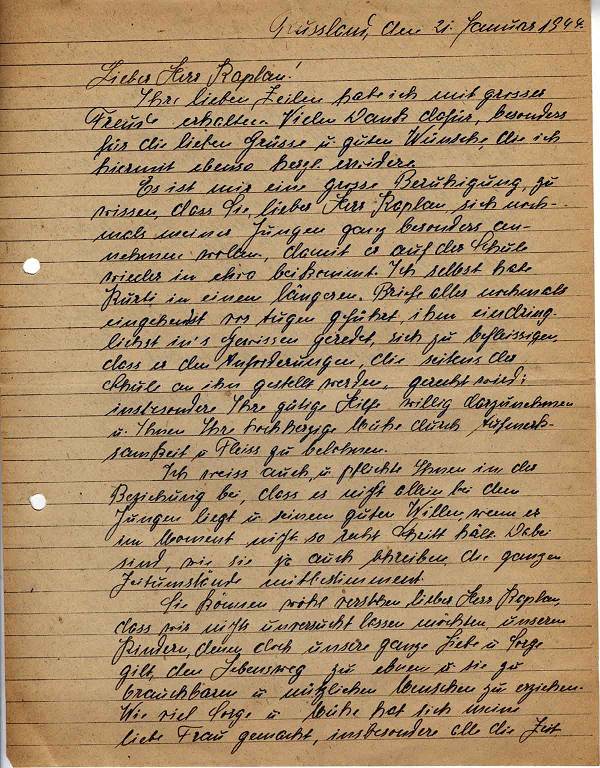 Russland, den 21. Januar 1944.
Lieber Herr Kaplan!
Ihre lieben Zeilen habe ich mit grosser
Freude erhalten. Vielen Dank dafür, besonders
für die lieben Grüsse u. guten Wünsche, die ich
hiermit ebenso herzl. erwidere.
Es ist mir eine grosse Beruhigung, zu
wissen, dass Sie, lieber Herr Kaplan, sich noch-
mals meiner Jungen ganz besonders an-
nehmen wollen, damit er auf der Schule
wieder in etwa beikommt. Ich selbst habe
Kurti in einem längeren Briefe alles nochmals
eingehendst vor Augen geführt, ihm eindring-
lichst in's Gewissen geredet, sich zu befleissigen,
dass er den Anforderungen, die seitens der
Schule an ihn gestellt werden, gerecht wird;
insbesondere Ihre gütige Hilfe willig
u. Ihnen Ihre hochherzige Mühe durch Aufmerk-
samkeit u. Fleiss zu belohnen.
Ich weiss auch, u. pflichte Ihnen in der
Beziehung bei, dass es nicht allein bei dem
Jungen liegt u. seinem guten Willen, wenn er
im Moment nicht so recht Schritt hält. Dabei
sind, wie sie ja auch schreiben, die ganzen
Zeitumstände mitbestimmend.
Sie können wohl verstehen lieber Herr Kaplan,
dass wir nichts unversucht lassen möchten, unseren
Kindern, denen doch unsere ganze Liebe u. Sorge
gilt, den Lebensweg zu ebnen u. sie zu
brauchbaren u. nützlichen Menschen zu erziehen.
Wie viel Sorge u. Mühe hat sich meine
liebe Frau gemacht, insbesondere alle die Zeit